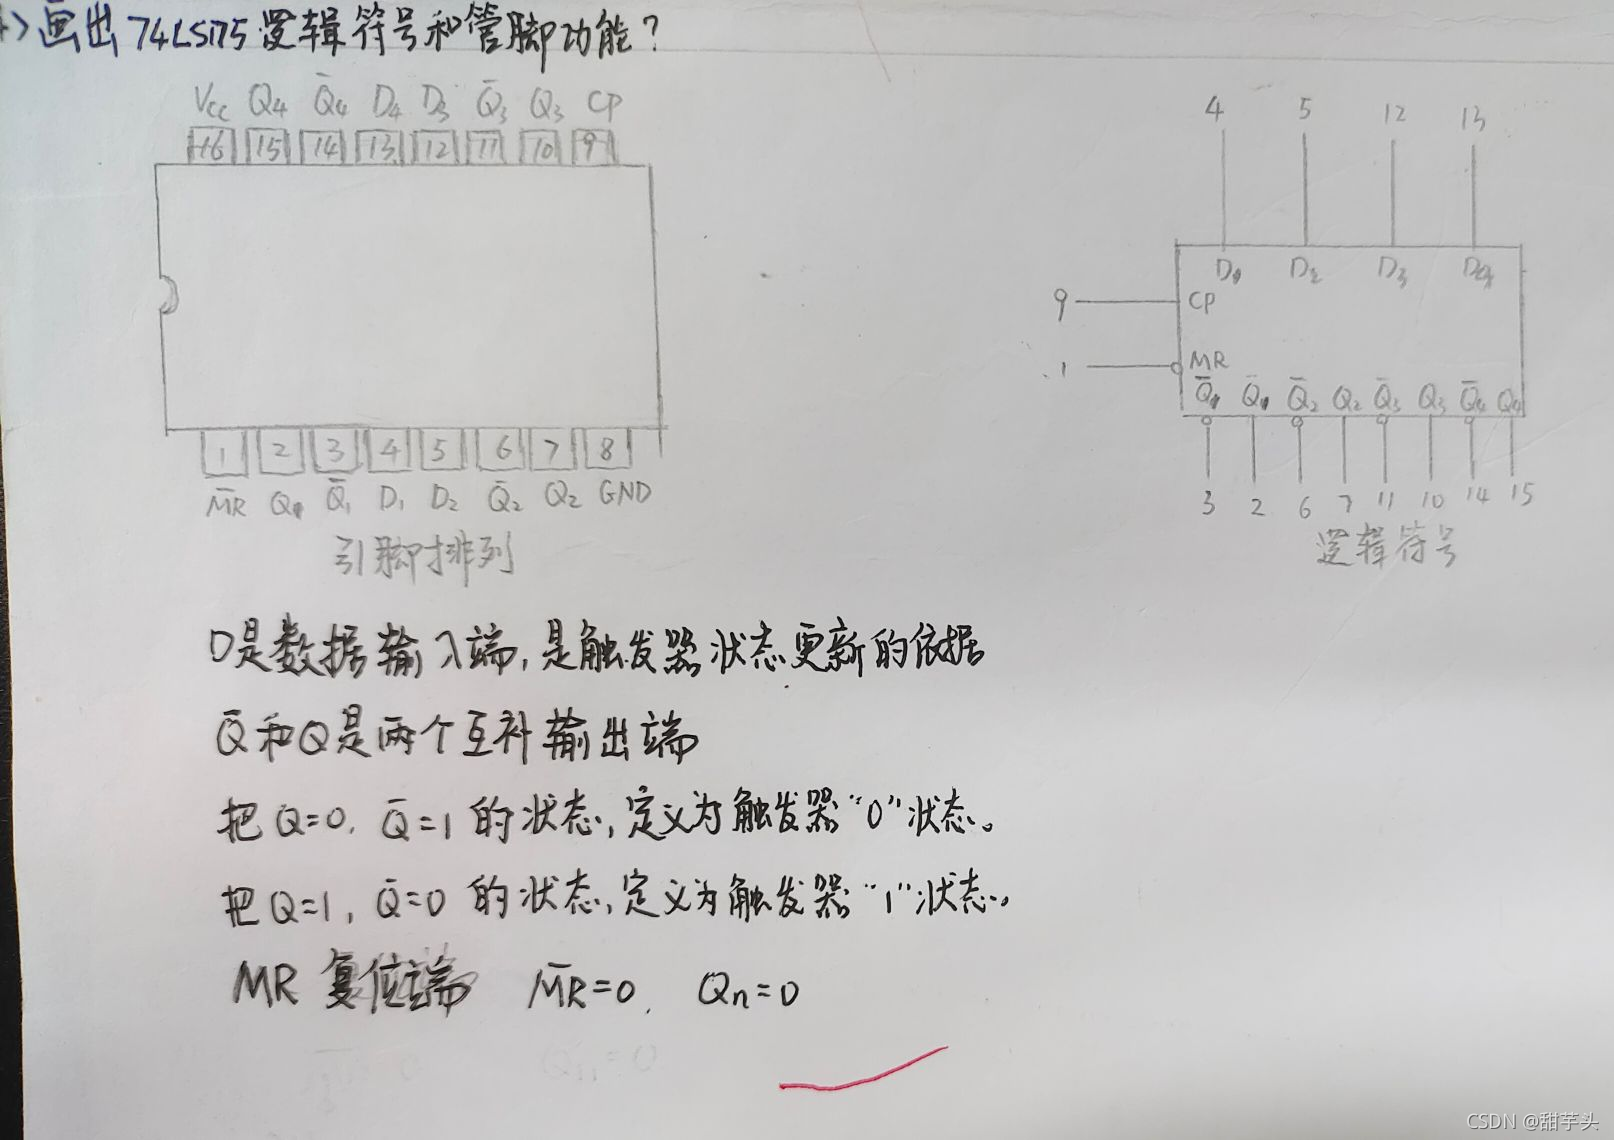 4>画出74LS175逻辑符号和管脚功能?
Vcc Q4 Q̄4 D4 D3 Q̄3 Q3 CP
16 15 14 13 12 11 10 9
1 2 3 4 5 6 7 8
M̄R Q1 Q̄1 D1 D2 Q̄2 Q2 GND
引脚排列
4 5 12 13
D1 D2 D3 D4
9 CP
1 MR
Q̄1 Q1 Q̄2 Q2 Q̄3 Q3 Q̄4 Q4
3 2 6 7 11 10 14 15
逻辑符号
D是数据输入端,是触发器状态更新的依据
Q̄和Q是两个互补输出端
把Q=0, Q̄=1的状态,定义为触发器"0"状态。
把Q=1, Q̄=0的状态,定义为触发器"1"状态。
MR 复位端 M̄R=0, Qn=0
CSDN @甜芋头